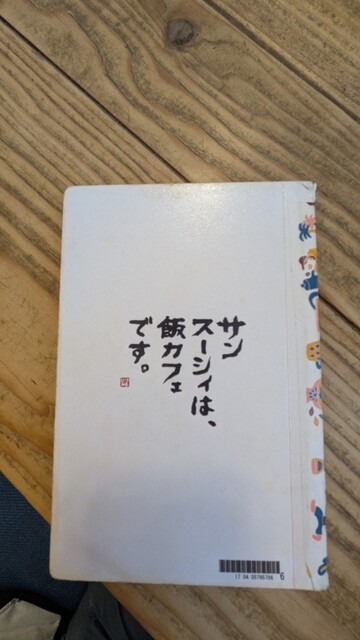 サン
スーシィは、
飯カフェ
です。
17 04 00706706 6